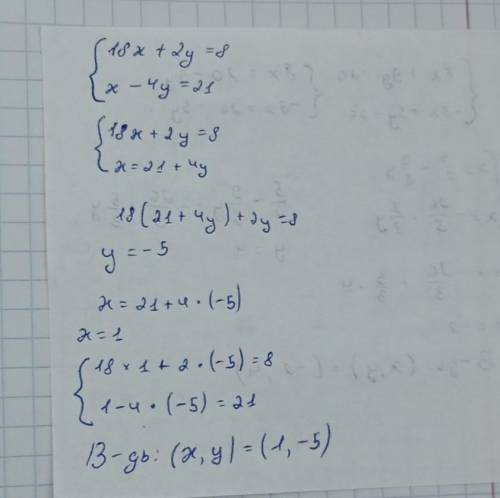 18x + 2y = 8
x - 4y = 21
18x + 2y = 8
x = 21 + 4y
18(21 + 4y) + 2y = 8
y = -5
x = 21 + 4 · (-5)
x = 1
18 × 1 + 2 · (-5) = 8
1 - 4 · (-5) = 21
В-дь: (x, y) = (1, -5)